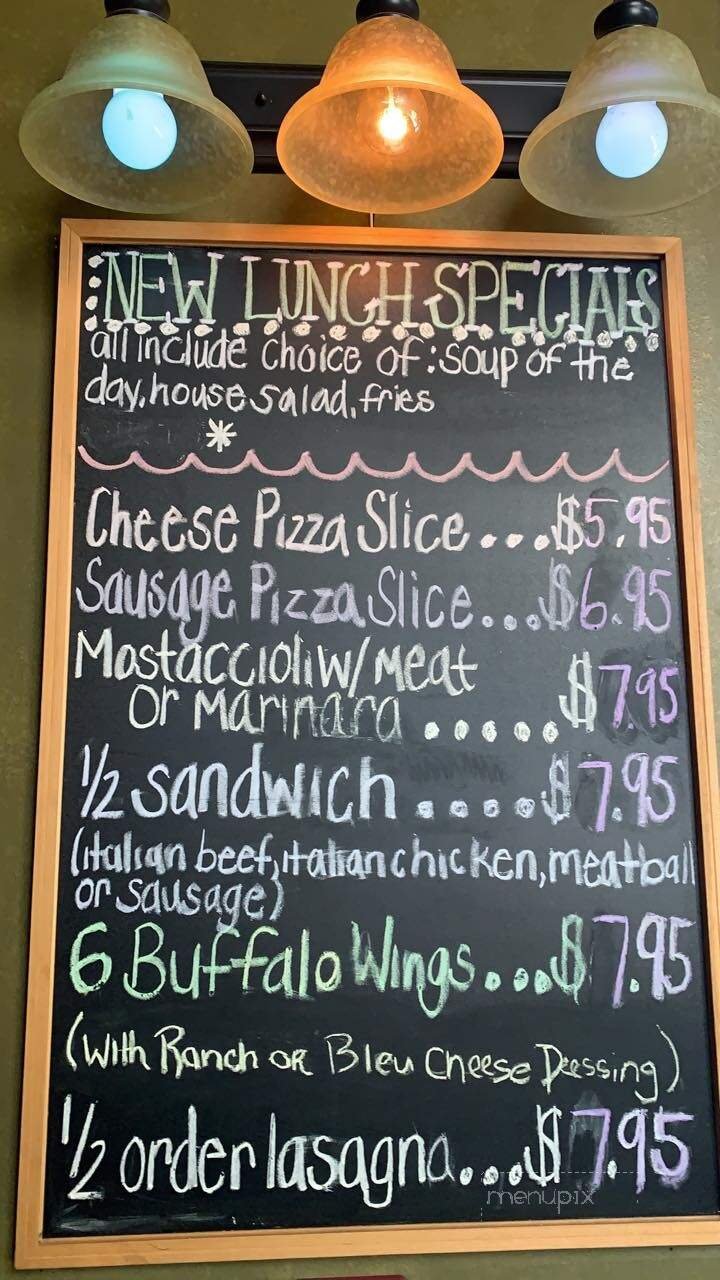 NEW LUNCH SPECIALS
all include choice of: soup of the
day, house salad, fries
*
Cheese Pizza Slice...$5.95
Sausage Pizza Slice...$6.95
Mostaccioli w/ Meat
or Marinara.....$7.95
1/2 sandwich....$7.95
(italian beef, italian chicken, meatball
or sausage)
6 Buffalo Wings...$7.95
(With Ranch or Bleu Cheese Dressing)
1/2 order lasagna...$7.95
menupix